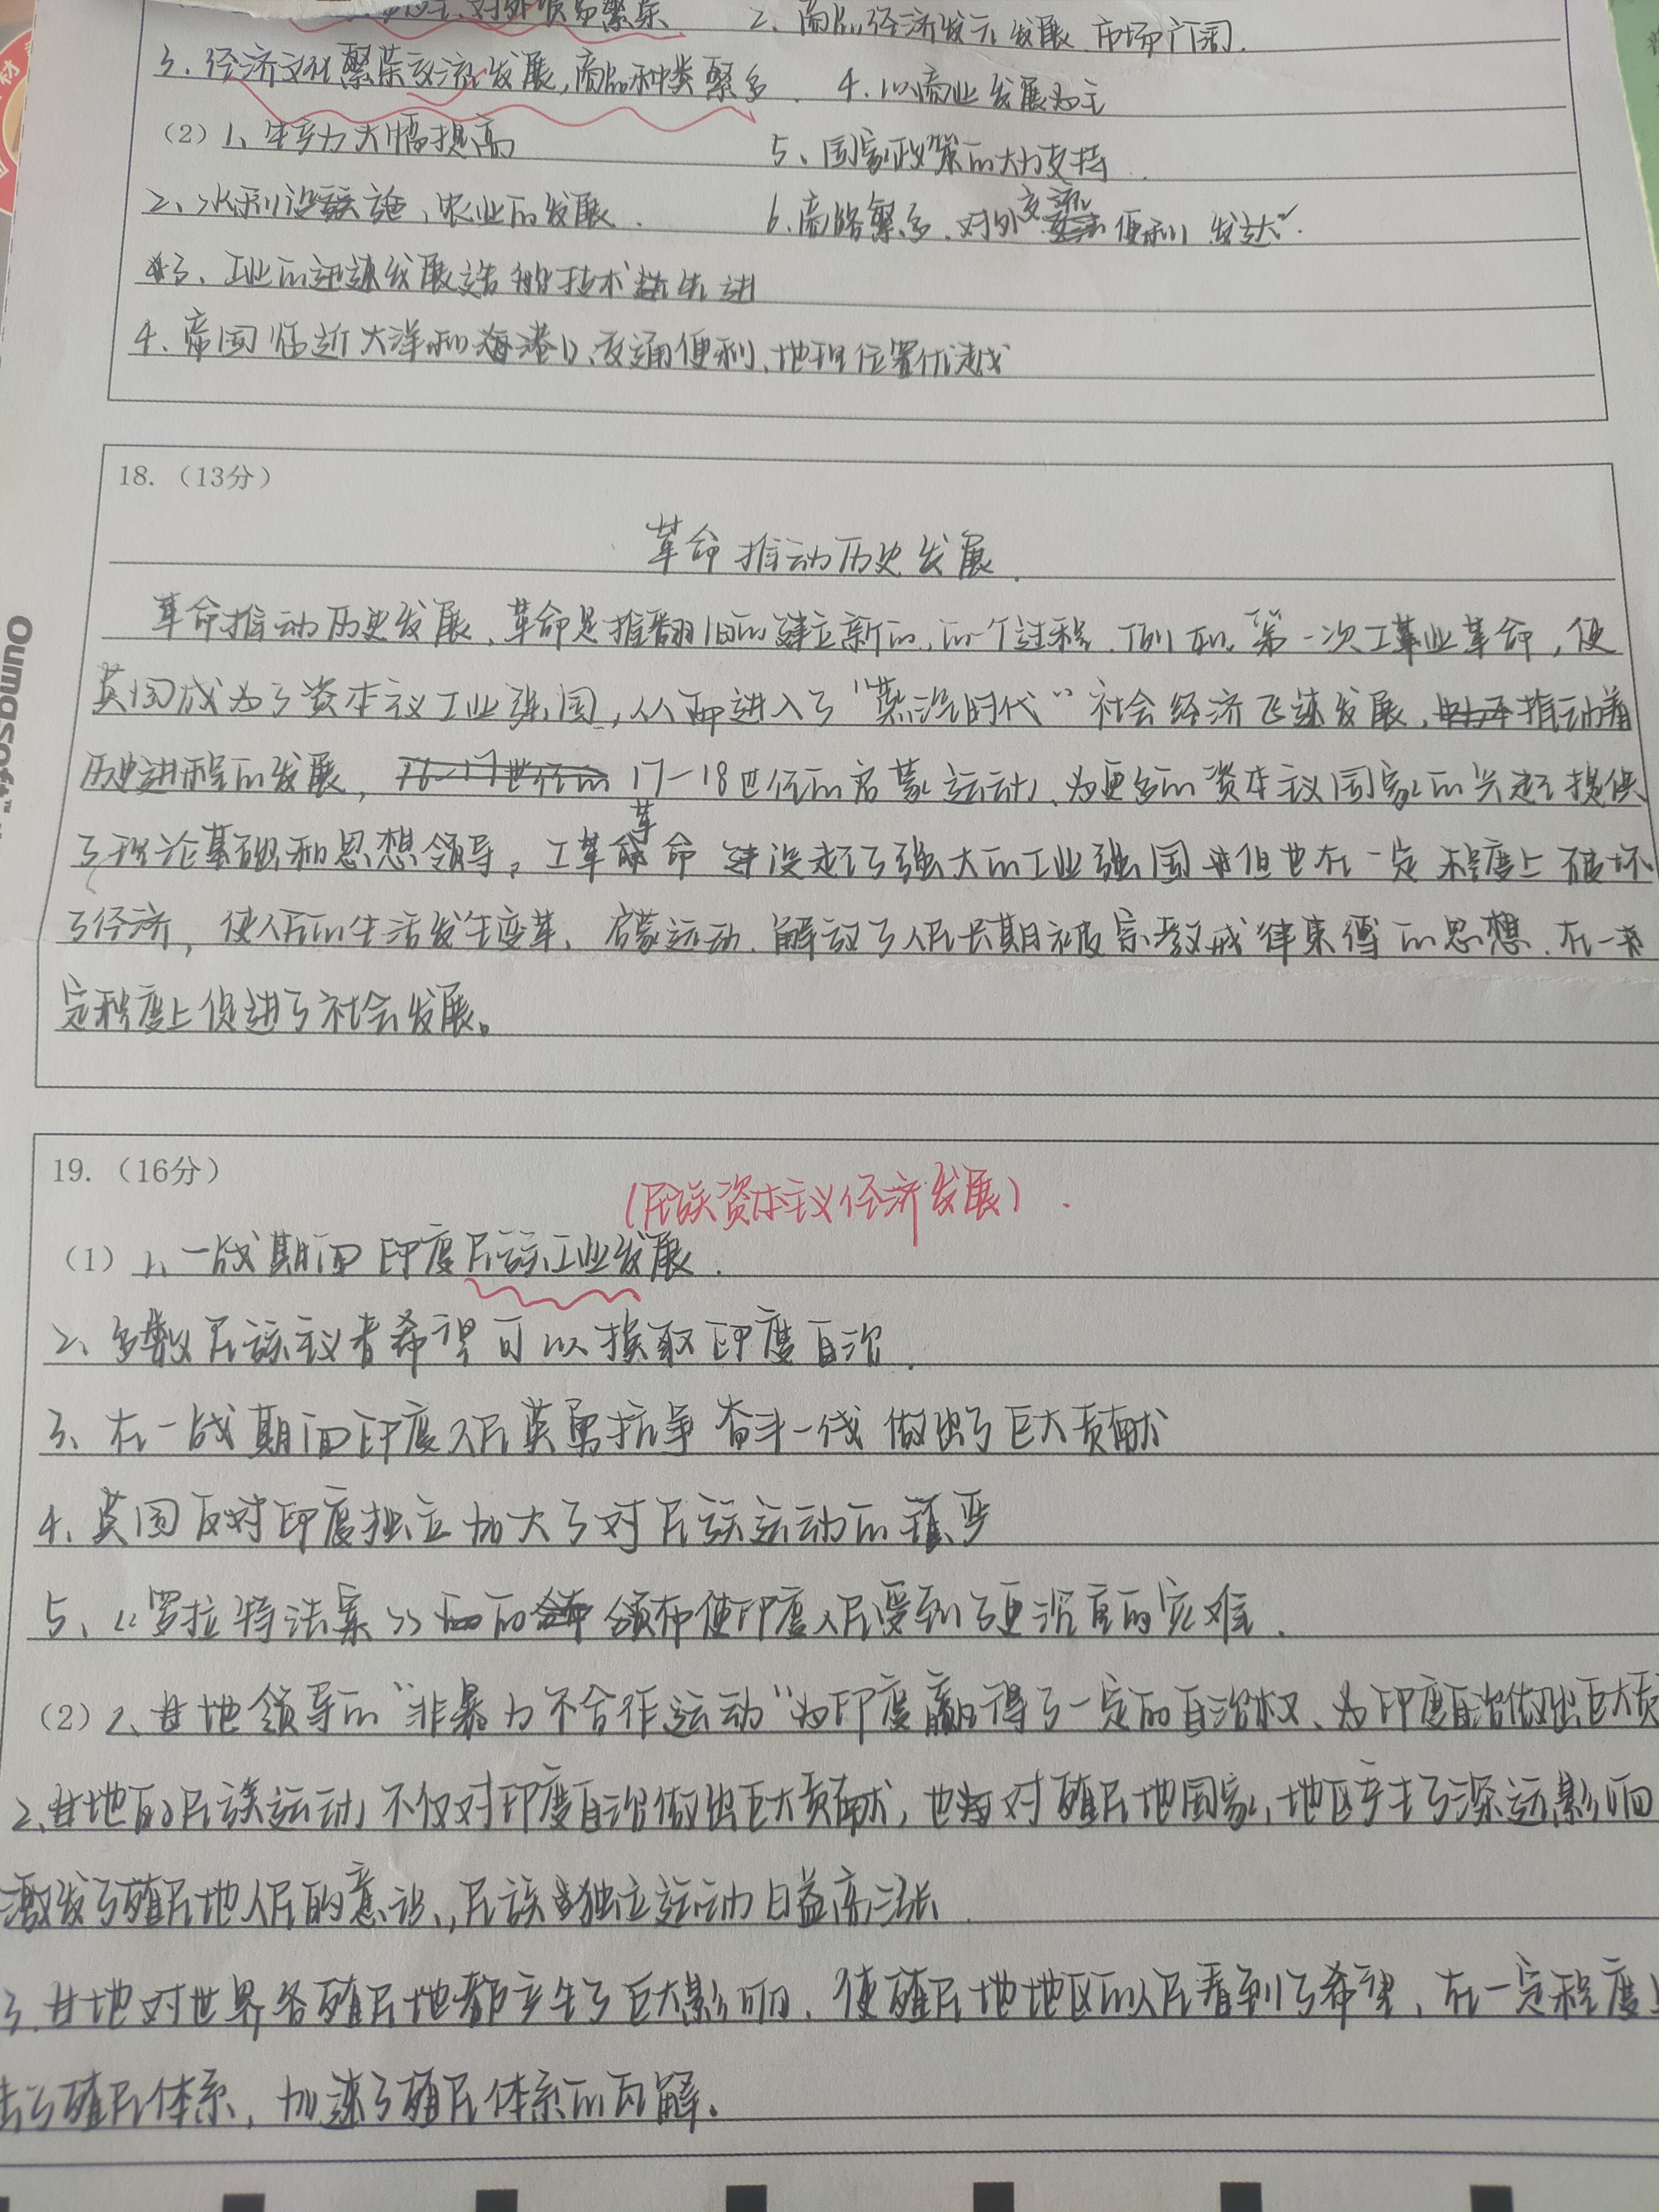 对外贸易繁荣 2、商品经济发示发展、市场广阔.
3、经济文化繁荣交流发展,商品种类繁多. 4、以商业发展为主
(2) 1、生产力大幅提高 5、国家政策的大力支持.
2、水利设施、农业的发展. 6、商路繁多、对外交流便利 发达.
3、工业的迅速发展造船技术先进
4、帝国临近大洋和海港口、交通便利、地理位置优越
18.(13分)
革命推动历史发展.
革命推动历史发展、革命是推翻旧的建立新的,的一个过程. 例如. 第一次工业革命,使
英国成为了资本主义工业强国,从而进入了“蒸汽时代”社会经济飞速发展、推动着
历史进程的发展, 17-18世纪的启蒙运动、为更多的资本主义国家的兴起提供
了理论基础和思想领导。工业革命 建设起了强大的工业强国 但也在一定程度上破坏
了经济,使人民的生活发生变革、启蒙运动.解放了人民长期被宗教戒律束缚的思想.在一
定程度上促进了社会发展。
19.(16分)
(民族资本主义经济发展).
(1) 1、一战期间印度民族工业发展.
2、多数民族主义者希望可以换取印度自治.
3、在一战期间印度人民英勇抗争 奋斗一线 做出了巨大贡献
4、英国反对印度独立加大了对民族运动的镇压
5、《罗拉特法案》的颁布使印度人民受到了更沉重的灾难.
(2) 1、甘地领导的“非暴力不合作运动”为印度赢得了一定的自治权、为印度自治做出巨大贡
2、甘地的民族运动不仅对印度自治做出巨大贡献,也对殖民地国家、地区产生了深远影响
激发了殖民地人民的意识、,民族独立运动日益高涨.
3、甘地对世界各殖民地都产生了巨大影响、使殖民地地区的人民看到了希望、在一定程度上
击了殖民体系,加速了殖民体系的瓦解.
Oumasoft™
材